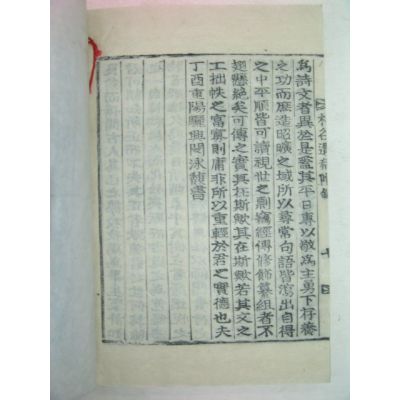 谷遺稿附錄
爲詩文者異於是蓋其平日專以敬爲主勇下存養
之功而歷造昭曠之域所以尋常句語皆瀉出自得
之中平順皆可讀視世之剽竊經傳修飾纂組者不
翅懸絶矣可傳之實其在斯歟其在斯歟若其文之
工拙帙之富寡則庸何以重輕於君之實德也夫
丁酉重陽驪興閔泳馥書